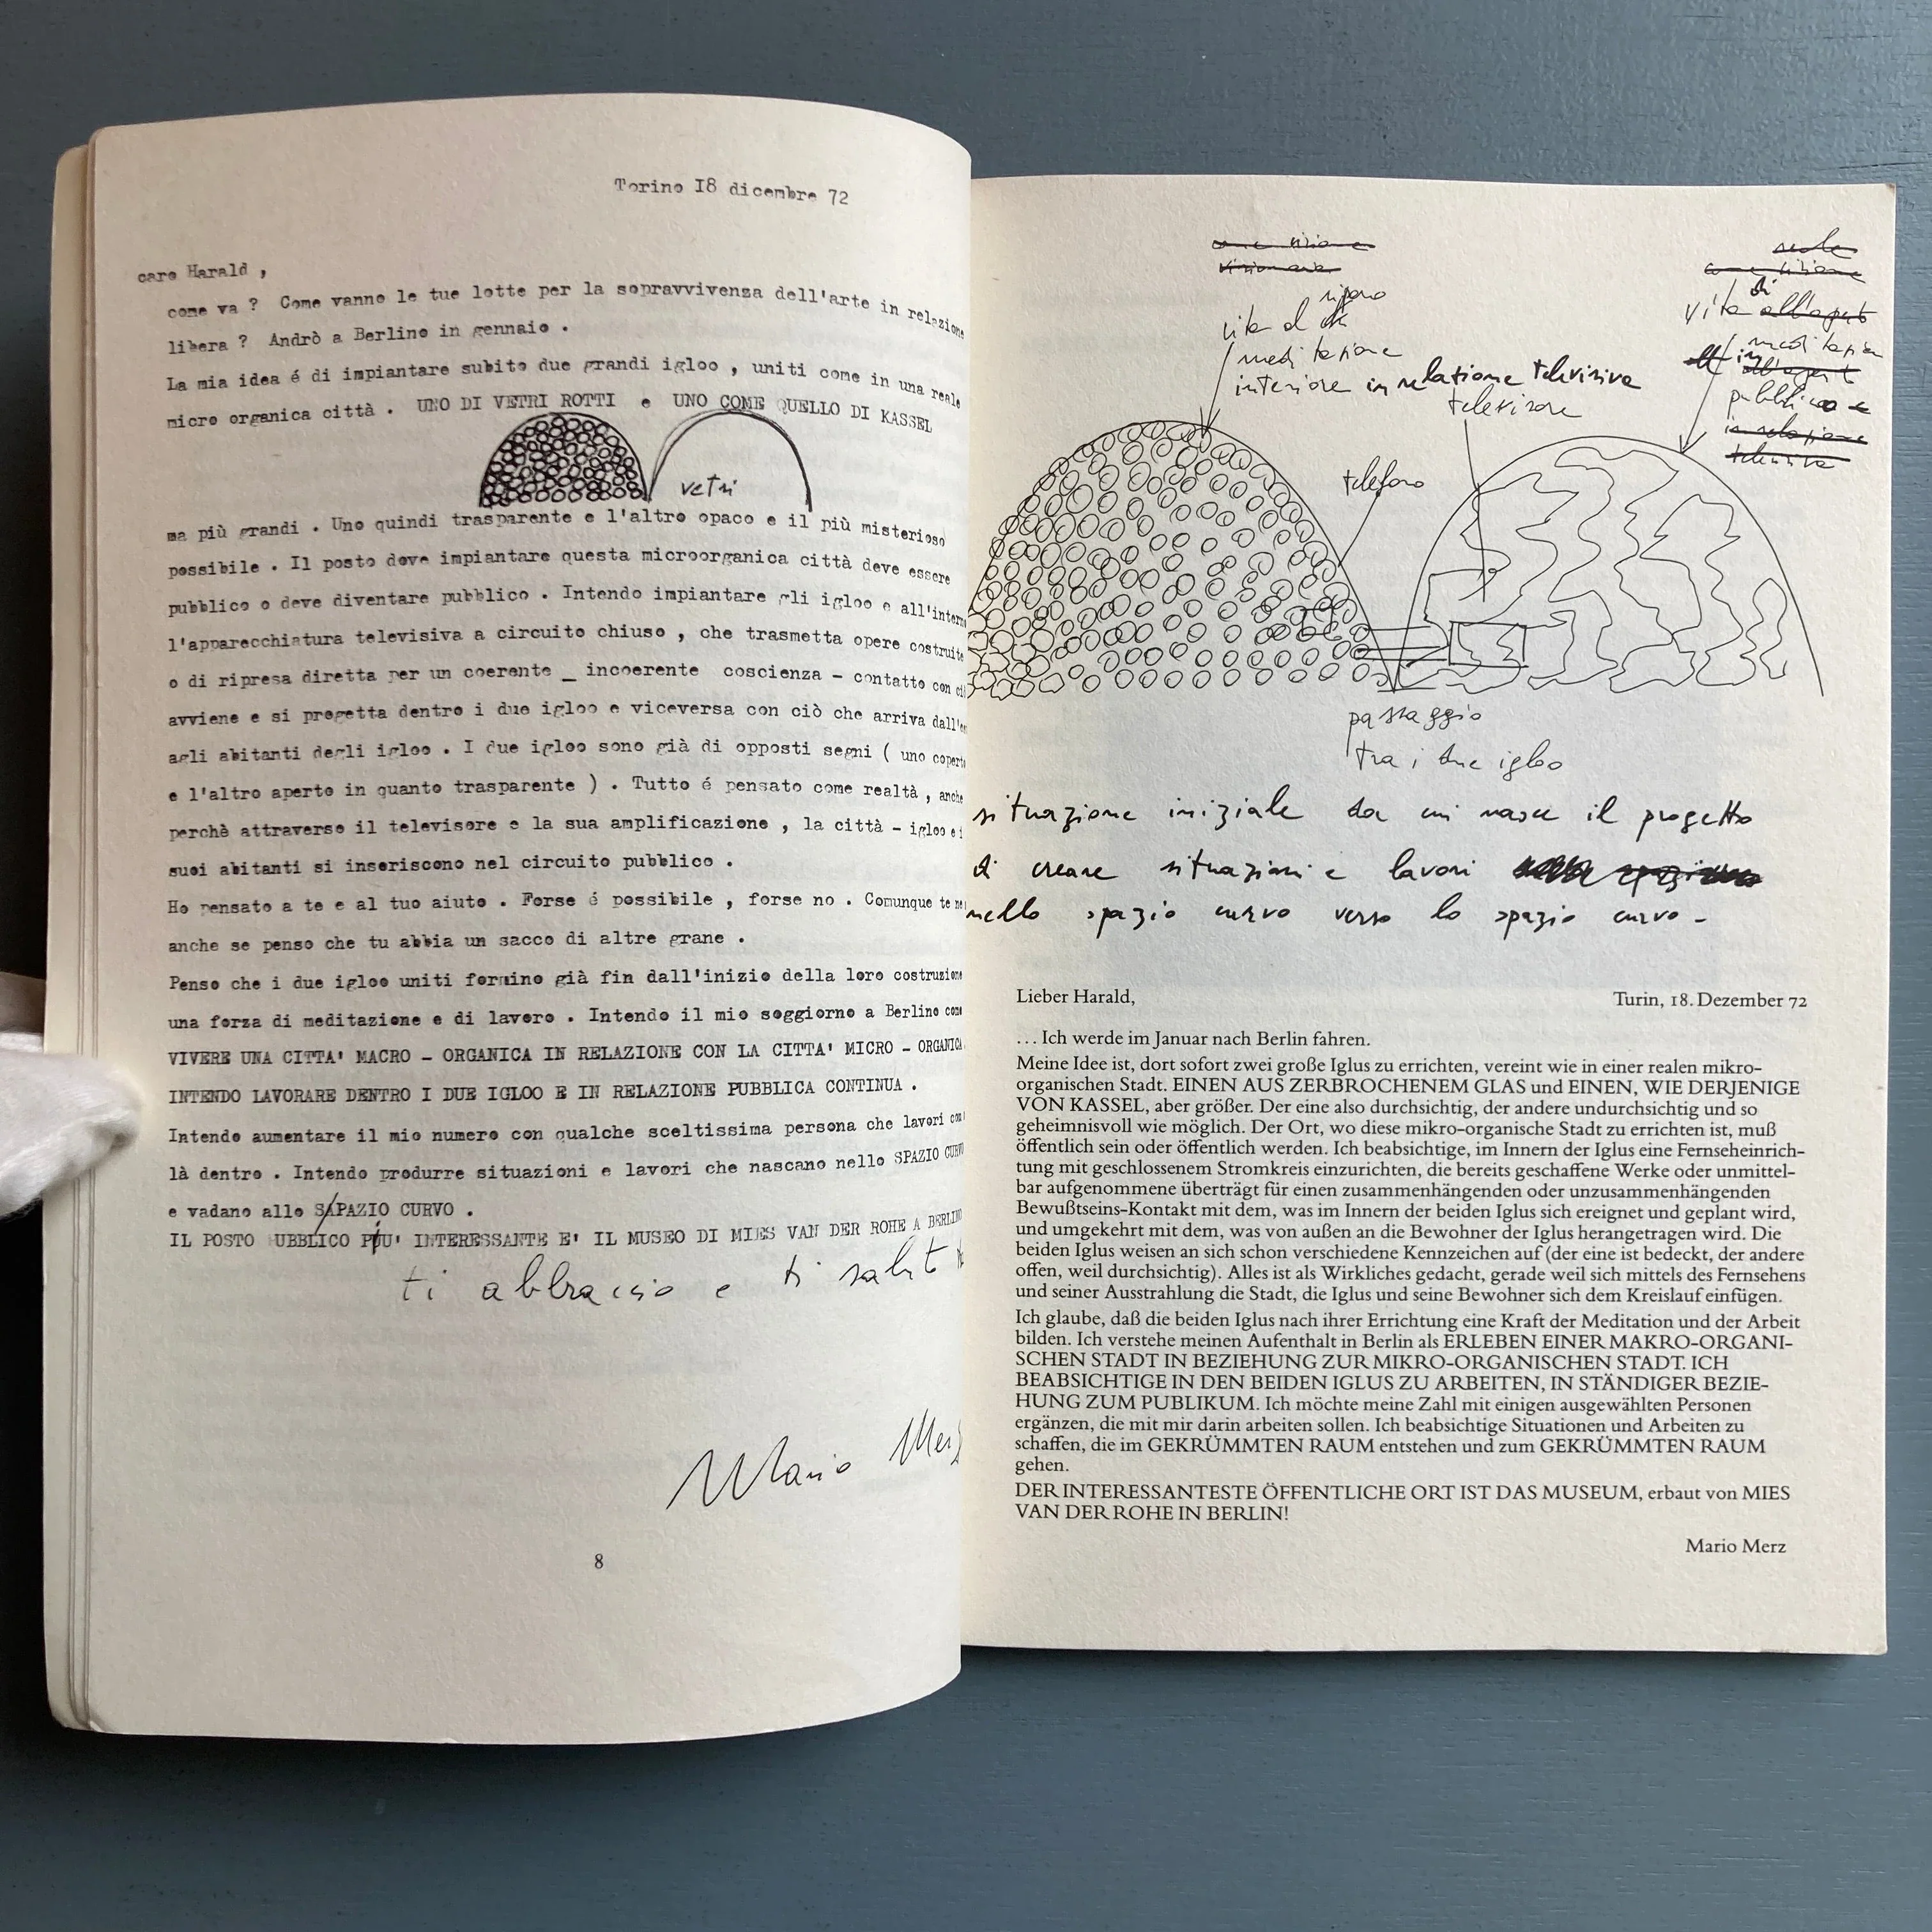 Torino I8 dicembre 72
caro Harald ,
come va ? Come vanno le tue lotte per la sopravvivenza dell'arte in relazione
libera ? Andrò a Berlino in gennaio .
La mia idea é di impiantare subito due grandi igloo , uniti come in una reale
micro organica città . UNO DI VETRI ROTTI e UNO COME QUELLO DI KASSEL
vetri
ma più grandi . Uno quindi trasparente e l'altro opaco e il più misterioso
possibile . Il posto dove impiantare questa microorganica città deve essere
pubblico o deve diventare pubblico . Intendo impiantare gli igloo e all'intern
l'apparecchiatura televisiva a circuito chiuso , che trasmetta opere costruite
o di ripresa diretta per un coerente _ incoerente coscienza - contatto con ci
avviene e si progetta dentro i due igloo e viceversa con ciò che arriva dall'e
agli abitanti degli igloo . I due igloo sono già di opposti segni ( uno copert
e l'altro aperto in quanto trasparente ) . Tutto é pensato come realtà , anche
perchè attraverso il televisore e la sua amplificazione , la città - igloo e i
suoi abitanti si inseriscono nel circuito pubblico .
Ho pensato a te e al tuo aiuto . Forse é possibile , forse no . Comunque te ne
anche se penso che tu abbia un sacco di altre grane .
Penso che i due igloo uniti formino già fin dall'inizio della loro costruzione
una forza di meditazione e di lavoro . Intendo il mio soggiorno a Berlino come
VIVERE UNA CITTA' MACRO - ORGANICA IN RELAZIONE CON LA CITTA' MICRO - ORGANICA
INTENDO LAVORARE DENTRO I DUE IGLOO E IN RELAZIONE PUBBLICA CONTINUA .
Intendo aumentare il mio numero con qualche sceltissima persona che lavori con
là dentro . Intendo produrre situazioni e lavori che nascano nello SPAZIO CURVO
e vadano allo S/PAZIO CURVO .
IL POSTO UBBLICO PIU' INTERESSANTE E' IL MUSEO DI MIES VAN DER ROHE A BERLINO
ti abbraccio e ti salut
Mario Merz
8
come visione
visionaria
riposo
vita d
meditazione
interiore in relazione televisiva
televisore
telefono
come visione
di
vita all'aperto
meditazion
in
pubblico e
in relazione
televisiva
passaggio
tra i due igloo
situazione iniziale da cui nasce il progetto
di creare situazioni e lavori
nello spazio curvo verso lo spazio curvo -
Lieber Harald,
Turin, 18. Dezember 72
. . . Ich werde im Januar nach Berlin fahren.
Meine Idee ist, dort sofort zwei große Iglus zu errichten, vereint wie in einer realen mikro-
organischen Stadt. EINEN AUS ZERBROCHENEM GLAS und EINEN, WIE DERJENIGE
VON KASSEL, aber größer. Der eine also durchsichtig, der andere undurchsichtig und so
geheimnisvoll wie möglich. Der Ort, wo diese mikro-organische Stadt zu errichten ist, muß
öffentlich sein oder öffentlich werden. Ich beabsichtige, im Innern der Iglus eine Fernseheinrich-
tung mit geschlossenem Stromkreis einzurichten, die bereits geschaffene Werke oder unmittel-
bar aufgenommene überträgt für einen zusammenhängenden oder unzusammenhängenden
Bewußtseins-Kontakt mit dem, was im Innern der beiden Iglus sich ereignet und geplant wird,
und umgekehrt mit dem, was von außen an die Bewohner der Iglus herangetragen wird. Die
beiden Iglus weisen an sich schon verschiedene Kennzeichen auf (der eine ist bedeckt, der andere
offen, weil durchsichtig). Alles ist als Wirkliches gedacht, gerade weil sich mittels des Fernsehens
und seiner Ausstrahlung die Stadt, die Iglus und seine Bewohner sich dem Kreislauf einfügen.
Ich glaube, daß die beiden Iglus nach ihrer Errichtung eine Kraft der Meditation und der Arbeit
bilden. Ich verstehe meinen Aufenthalt in Berlin als ERLEBEN EINER MAKRO-ORGANI-
SCHEN STADT IN BEZIEHUNG ZUR MIKRO-ORGANISCHEN STADT. ICH
BEABSICHTIGE IN DEN BEIDEN IGLUS ZU ARBEITEN, IN STÄNDIGER BEZIE-
HUNG ZUM PUBLIKUM. Ich möchte meine Zahl mit einigen ausgewählten Personen
ergänzen, die mit mir darin arbeiten sollen. Ich beabsichtige Situationen und Arbeiten zu
schaffen, die im GEKRÜMMTEN RAUM entstehen und zum GEKRÜMMTEN RAUM
gehen.
DER INTERESSANTESTE ÖFFENTLICHE ORT IST DAS MUSEUM, erbaut von MIES
VAN DER ROHE IN BERLIN!
Mario Merz